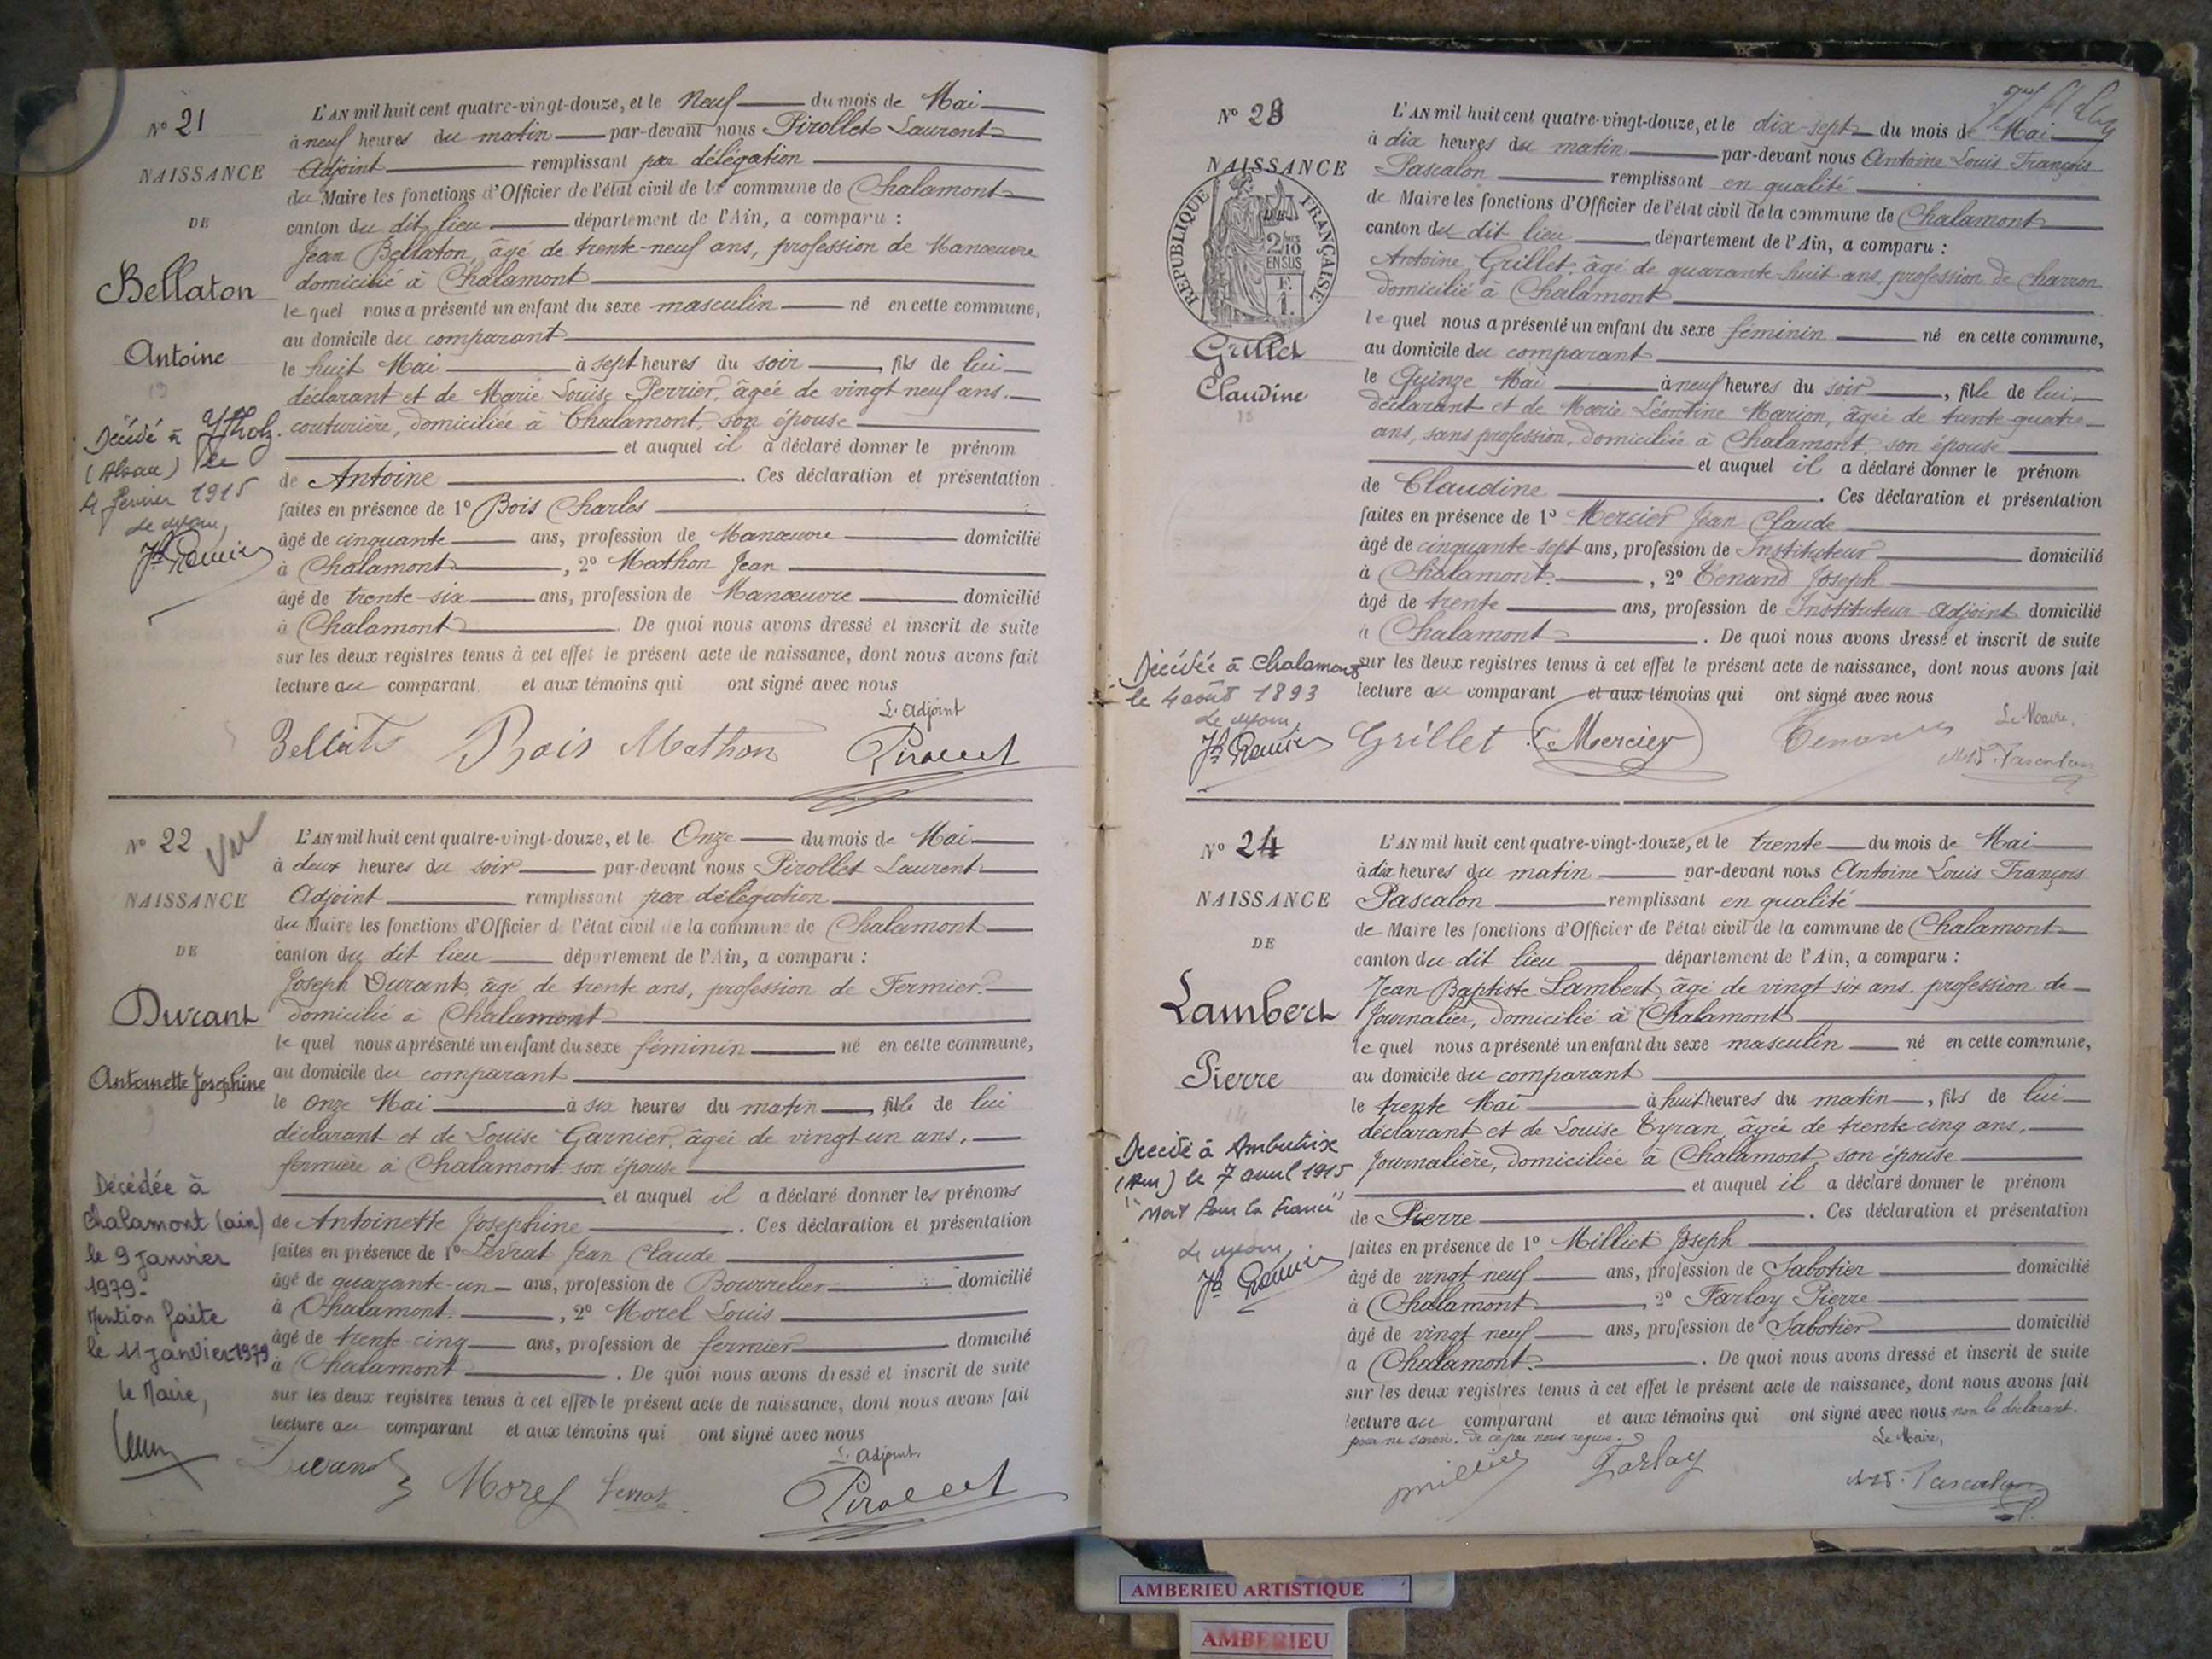 N° 21
NAISSANCE
DE
Bellaton
Antoine
Décédé à
(Alsace) le
4 février 1915
L'AN mil huit cent quatre-vingt-douze, et le Neuf du mois de Mai
à neuf heures du matin par-devant nous Pirollet Laurent
Adjoint remplissant par délégation
du Maire les fonctions d'Officier de l'état civil de la commune de Chalamont
canton du dit lieu département de l'Ain, a comparu :
Jean Bellaton, âgé de trente-neuf ans, profession de Manœuvre
domicilié à Chalamont
le quel nous a présenté un enfant du sexe masculin né en cette commune,
au domicile du comparant
le huit Mai à sept heures du soir, fils de lui
déclarant et de Marie Louise Perrier, âgée de vingt neuf ans.
couturière, domiciliée à Chalamont, son épouse
et auquel il a déclaré donner le prénom
de Antoine. Ces déclaration et présentation
faites en présence de 1° Bois Charles
âgé de cinquante ans, profession de Manœuvre domicilié
à Chalamont, 2° Mathon Jean
âgé de trente-six ans, profession de Manœuvre domicilié
à Chalamont. De quoi nous avons dressé et inscrit de suite
sur les deux registres tenus à cet effet le présent acte de naissance, dont nous avons fait
lecture au comparant et aux témoins qui ont signé avec nous
L'Adjoint
Bois Mathon Pirollet
N° 22
Vu
NAISSANCE
DE
Durant
Antoinette Josephine
Décédée à
Chalamont (ain)
le 9 Janvier
1979-
Mention faite
le 11 Janvier 1979
le Maire,
L'AN mil huit cent quatre-vingt-douze, et le Onze du mois de Mai
à deux heures du soir par-devant nous Pirollet Laurent
Adjoint remplissant par délégation
du Maire les fonctions d'Officier de l'état civil de la commune de Chalamont
canton du dit lieu département de l'Ain, a comparu :
Joseph Durant, âgé de trente ans, profession de Fermier
domicilié à Chalamont
le quel nous a présenté un enfant du sexe féminin né en cette commune,
au domicile du comparant
le onze Mai à six heures du matin, fille de lui
déclarant et de Louise Garnier, âgée de vingt un ans,
fermière à Chalamont son épouse
et auquel il a déclaré donner les prénoms
de Antoinette Josephine. Ces déclaration et présentation
faites en présence de 1° Levrat Jean Claude
âgé de quarante-un ans, profession de Bourrelier domicilié
à Chalamont, 2° Morel Louis
âgé de trente-cinq ans, profession de fermier domicilié
à Chalamont. De quoi nous avons dressé et inscrit de suite
sur les deux registres tenus à cet effet le présent acte de naissance, dont nous avons fait
lecture au comparant et aux témoins qui ont signé avec nous
L'Adjoint
Durand Morel Levrat Pirollet
N° 23
NAISSANCE
DE
RÉPUBLIQUE FRANÇAISE
Grillet
Claudine
Décédée à Chalamont
le 4 août 1893
L'AN mil huit cent quatre-vingt-douze, et le dix-sept du mois de Mai
à dix heures du matin par-devant nous Antoine Louis François
Pascalon remplissant en qualité
de Maire les fonctions d'Officier de l'état civil de la commune de Chalamont
canton du dit lieu, département de l'Ain, a comparu :
Antoine Grillet, âgé de quarante-huit ans, profession de charron
domicilié à Chalamont
le quel nous a présenté un enfant du sexe féminin né en cette commune,
au domicile du comparant
le Quinze Mai à neuf heures du soir, fille de lui
déclarant et de Marie Léontine Marion, âgée de trente-quatre
ans, sans profession, domiciliée à Chalamont son épouse
et auquel il a déclaré donner le prénom
de Claudine. Ces déclaration et présentation
faites en présence de 1° Mercier Jean Claude
âgé de cinquante-sept ans, profession de Instituteur domicilié
à Chalamont, 2° Tenand Joseph
âgé de trente ans, profession de Instituteur-Adjoint domicilié
à Chalamont. De quoi nous avons dressé et inscrit de suite
sur les deux registres tenus à cet effet le présent acte de naissance, dont nous avons fait
lecture au comparant et aux témoins qui ont signé avec nous
Le Maire,
Grillet Mercier Tenand Pascalon
N° 24
NAISSANCE
DE
Lambert
Pierre
Décédé à Ambutrix
(Ain) le 7 avril 1915
"Mort Pour la France"
L'AN mil huit cent quatre-vingt-douze, et le trente du mois de Mai
à dix heures du matin par-devant nous Antoine Louis François
Pascalon remplissant en qualité
de Maire les fonctions d'Officier de l'état civil de la commune de Chalamont
canton du dit lieu département de l'Ain, a comparu :
Jean Baptiste Lambert, âgé de vingt six ans. profession de
Journalier, domicilié à Chalamont
le quel nous a présenté un enfant du sexe masculin né en cette commune,
au domicile du comparant
le trente Mai à huit heures du matin, fils de lui
déclarant et de Louise Tyran, âgée de trente-cinq ans,
Journalière, domiciliée à Chalamont son épouse
et auquel il a déclaré donner le prénom
de Pierre. Ces déclaration et présentation
faites en présence de 1° Milliet Joseph
âgé de vingt neuf ans, profession de Sabotier domicilié
à Chalamont, 2° Farlay Pierre
âgé de vingt neuf ans, profession de Sabotier domicilié
à Chalamont. De quoi nous avons dressé et inscrit de suite
sur les deux registres tenus à cet effet le présent acte de naissance, dont nous avons fait
lecture au comparant et aux témoins qui ont signé avec nous, non le déclarant.
pour ne savoir. de ce par nous requis.
Le Maire,
Milliet Farlay Pascalon
AMBERIEU ARTISTIQUE
AMBERIEU